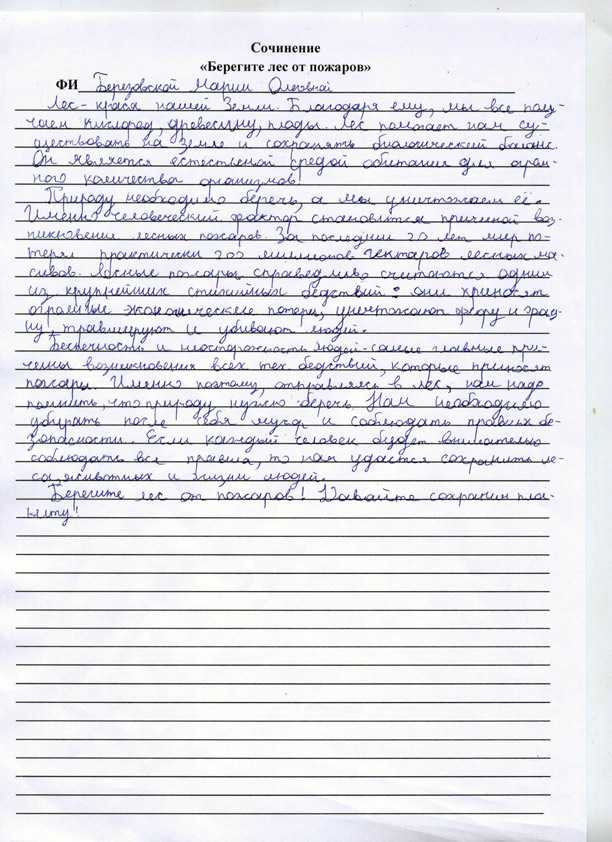 Сочинение
«Берегите лес от пожаров»
ФИ Березовской Марии Олеговной
Лес - краса нашей Земли. Благодаря ему, мы все полу-
чаем кислород, древесину, плоды. Лес помогает нам су-
ществовать на Земле и сохранять биологический баланс.
Он является естественной средой обитания для огром-
ного количества организмов!
Природу необходимо беречь, а мы уничтожаем её.
Именно человеческий фактор становится причиной воз-
никновения лесных пожаров. За последнии 20 лет мир по-
терял практически 200 миллионов гектаров лесных ма-
сивов. Лесные пожары справедливо считаются одним
из крупнейших стихийных бедствий: они приносят
огромные экономические потери, уничтожают флору и фау-
ну, травмируют и убивают людей.
Беспечность и неосторожность людей - самые главные при-
чины возникновения всех тех бедствий, которые приносят
пожары. Именно поэтому, отправляясь в лес, нам надо
помнить, что природу нужно беречь. Нам необходимо
убирать после себя мусор и соблюдать правила бе-
зопасности. Если каждый человек будет внимательно
соблюдать все правила, то нам удастся сохранить ле-
са, животных и жизни людей.
Берегите лес от пожаров! Давайте сохраним пла-
нету!